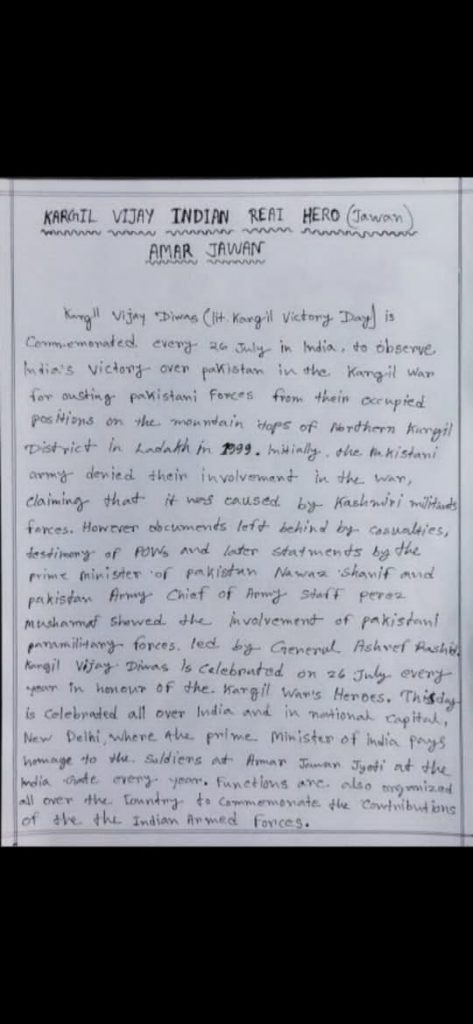 KARGIL VIJAY INDIAN REAI HERO (Jawan)
AMAR JAWAN
Kargil Vijay Diwas (lit. Kargil Victory Day) is
Commemonated every 26 July in India, to observe
India's Victory over pakistan in the Kargil War
for ousting pakistani Forces from their occupied
positions on the mountain tops of Northern Kargil
District in Ladakh in 1999. Initially, the Pakistani
army denied their involvement in the war,
claiming that it was caused by Kashmiri militants
forces. However documents left behind by casualties,
testimony of POWs and later statments by the
prime minister of pakistan Nawaz Sharif and
pakistan Army Chief of Army Staff perez
Musharraf showed the involvement of pakistani
paramilitary forces. led by General Ashref Rashid.
Kargil Vijay Diwas is celebrated on 26 July every
year in honour of the Kargil War's Heroes. This day
is Celebrated all over India and in national Capital,
New Delhi, where the prime Minister of India pays
homage to the Soldiers at Amar Jawan Jyoti at the
India Gate every year. Functions are also organized
all over the Country to Commemorate the Contributions
of the the Indian Armed Forces.